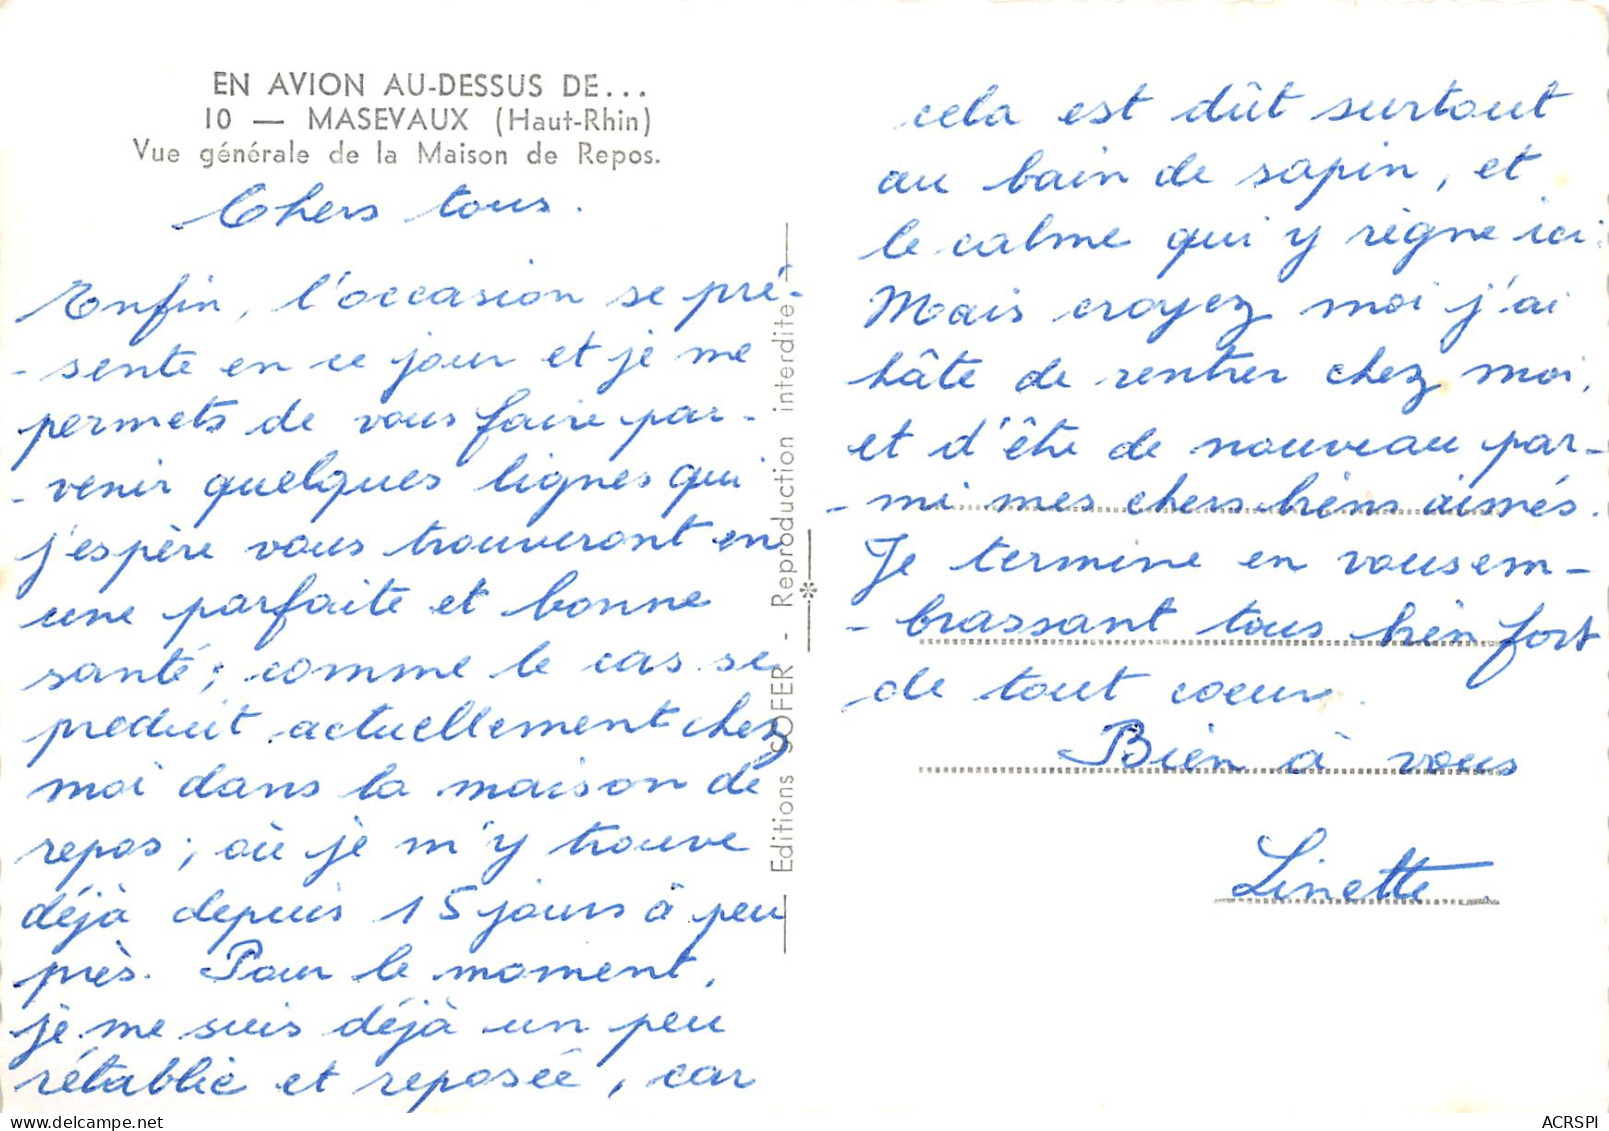 EN AVION AU-DESSUS DE...
10 — MASEVAUX (Haut-Rhin)
Vue générale de la Maison de Repos.
Chers tous.
Enfin, l'occasion se pré-
-sente en ce jour et je me
permets de vous faire par-
-venir quelques lignes qui
j'espère vous trouveront en
une parfaite et bonne
santé; comme le cas se
produit actuellement chez
moi dans la maison de
repos; où je m'y trouve
déjà depuis 15 jours à peu
près. Pour le moment,
je me suis déjà un peu
rétablie et reposée, car
Editions SOFER - Reproduction interdite
cela est dût surtout
au bain de sapin, et
le calme qui y règne ici.
Mais croyez moi j'ai
hâte de rentrer chez moi,
et d'être de nouveau par-
-mi mes chers bien aimés.
Je termine en vous em-
-brassant tous bien fort
de tout coeur.
Bien à vous
Linette
ACRSPI